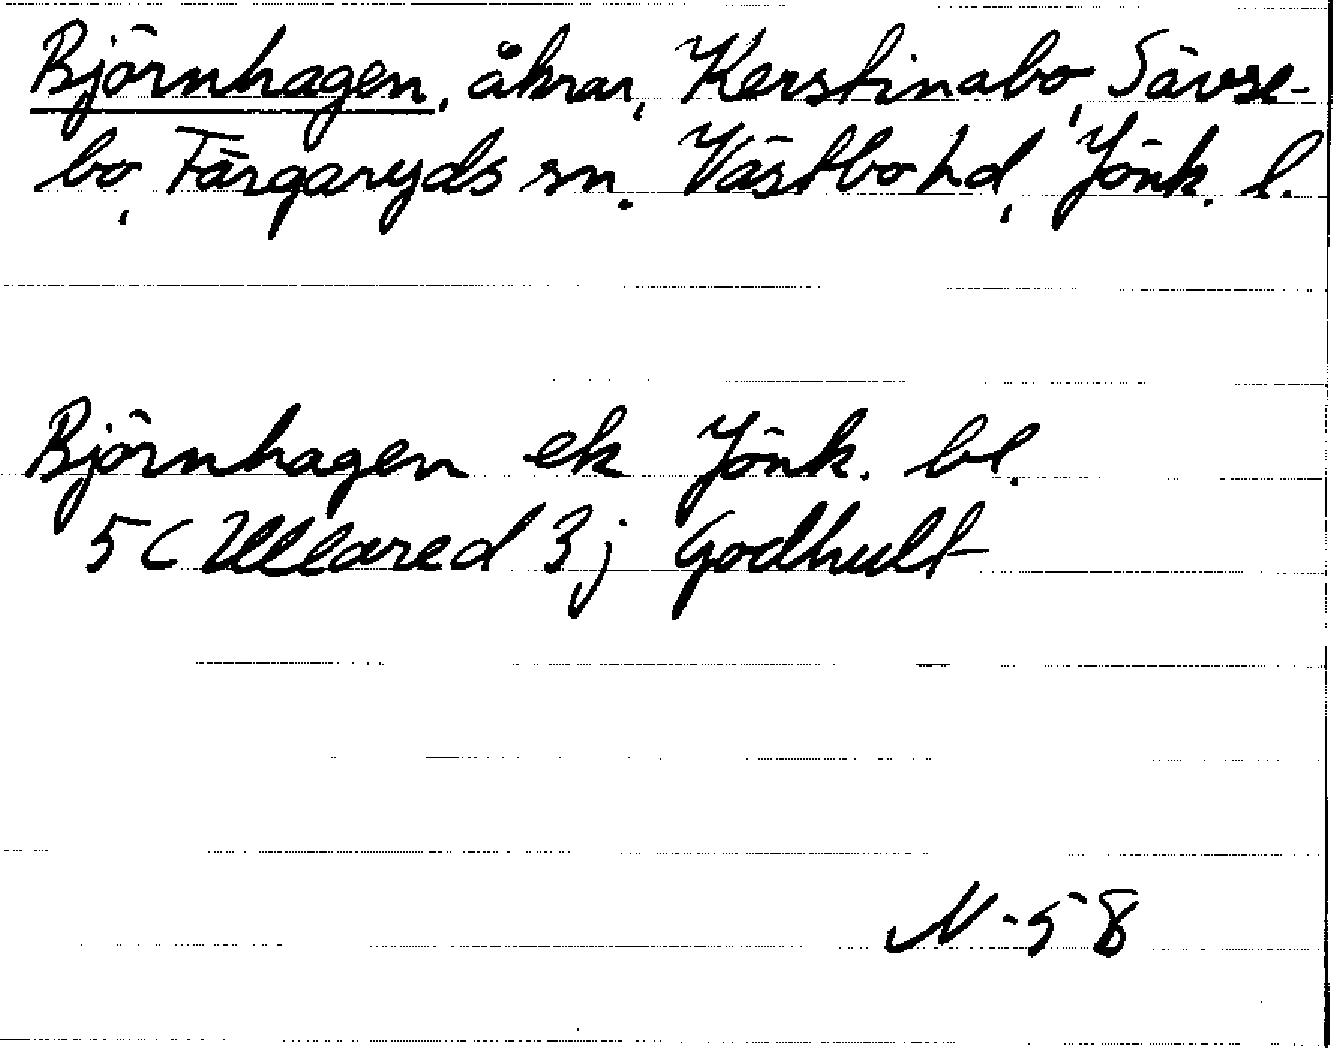 Björnhagen, åkrar, Kerstinabo, Sävse-
bo, Färgaryds sn. Västbo hd, Jönk. l.
Björnhagen ek Jönk. bl.
5C Ullared 3j Godhult
N-58